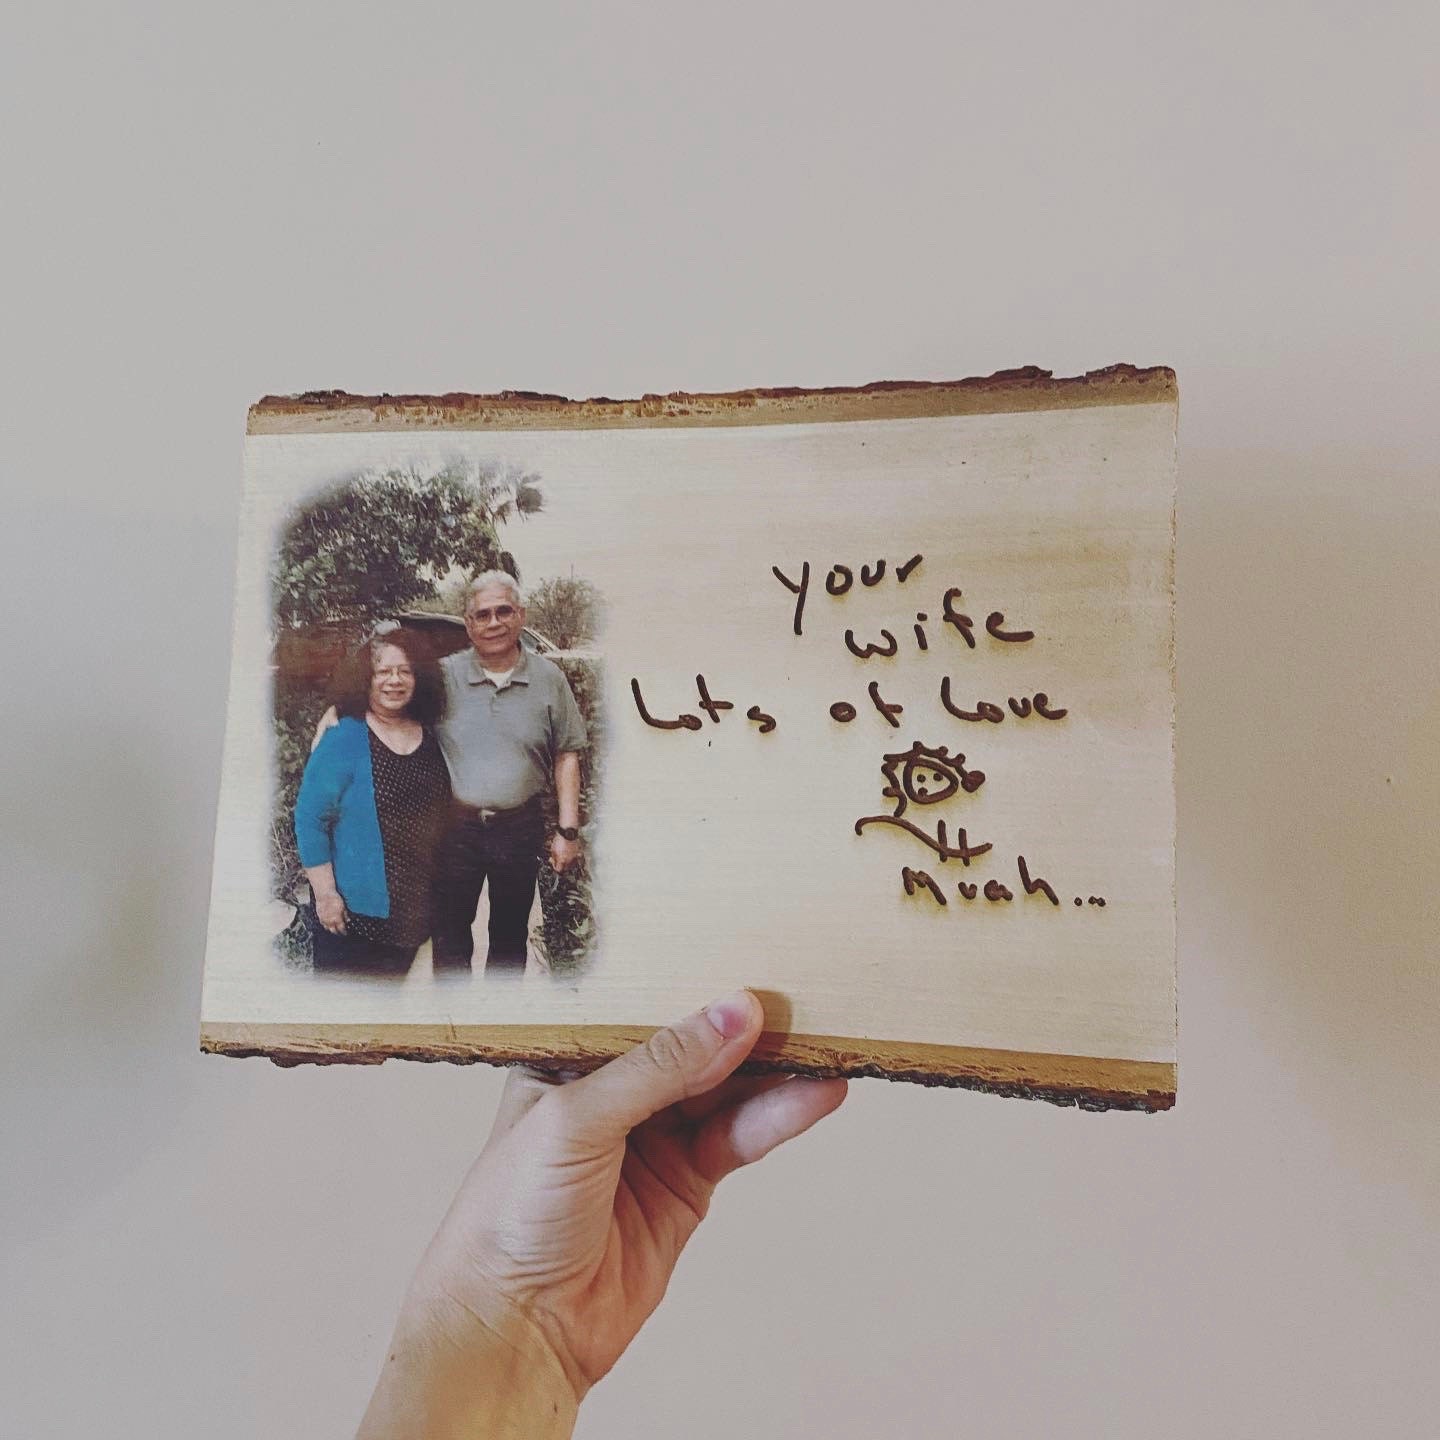 your
wife
Lots of Love
Muah...